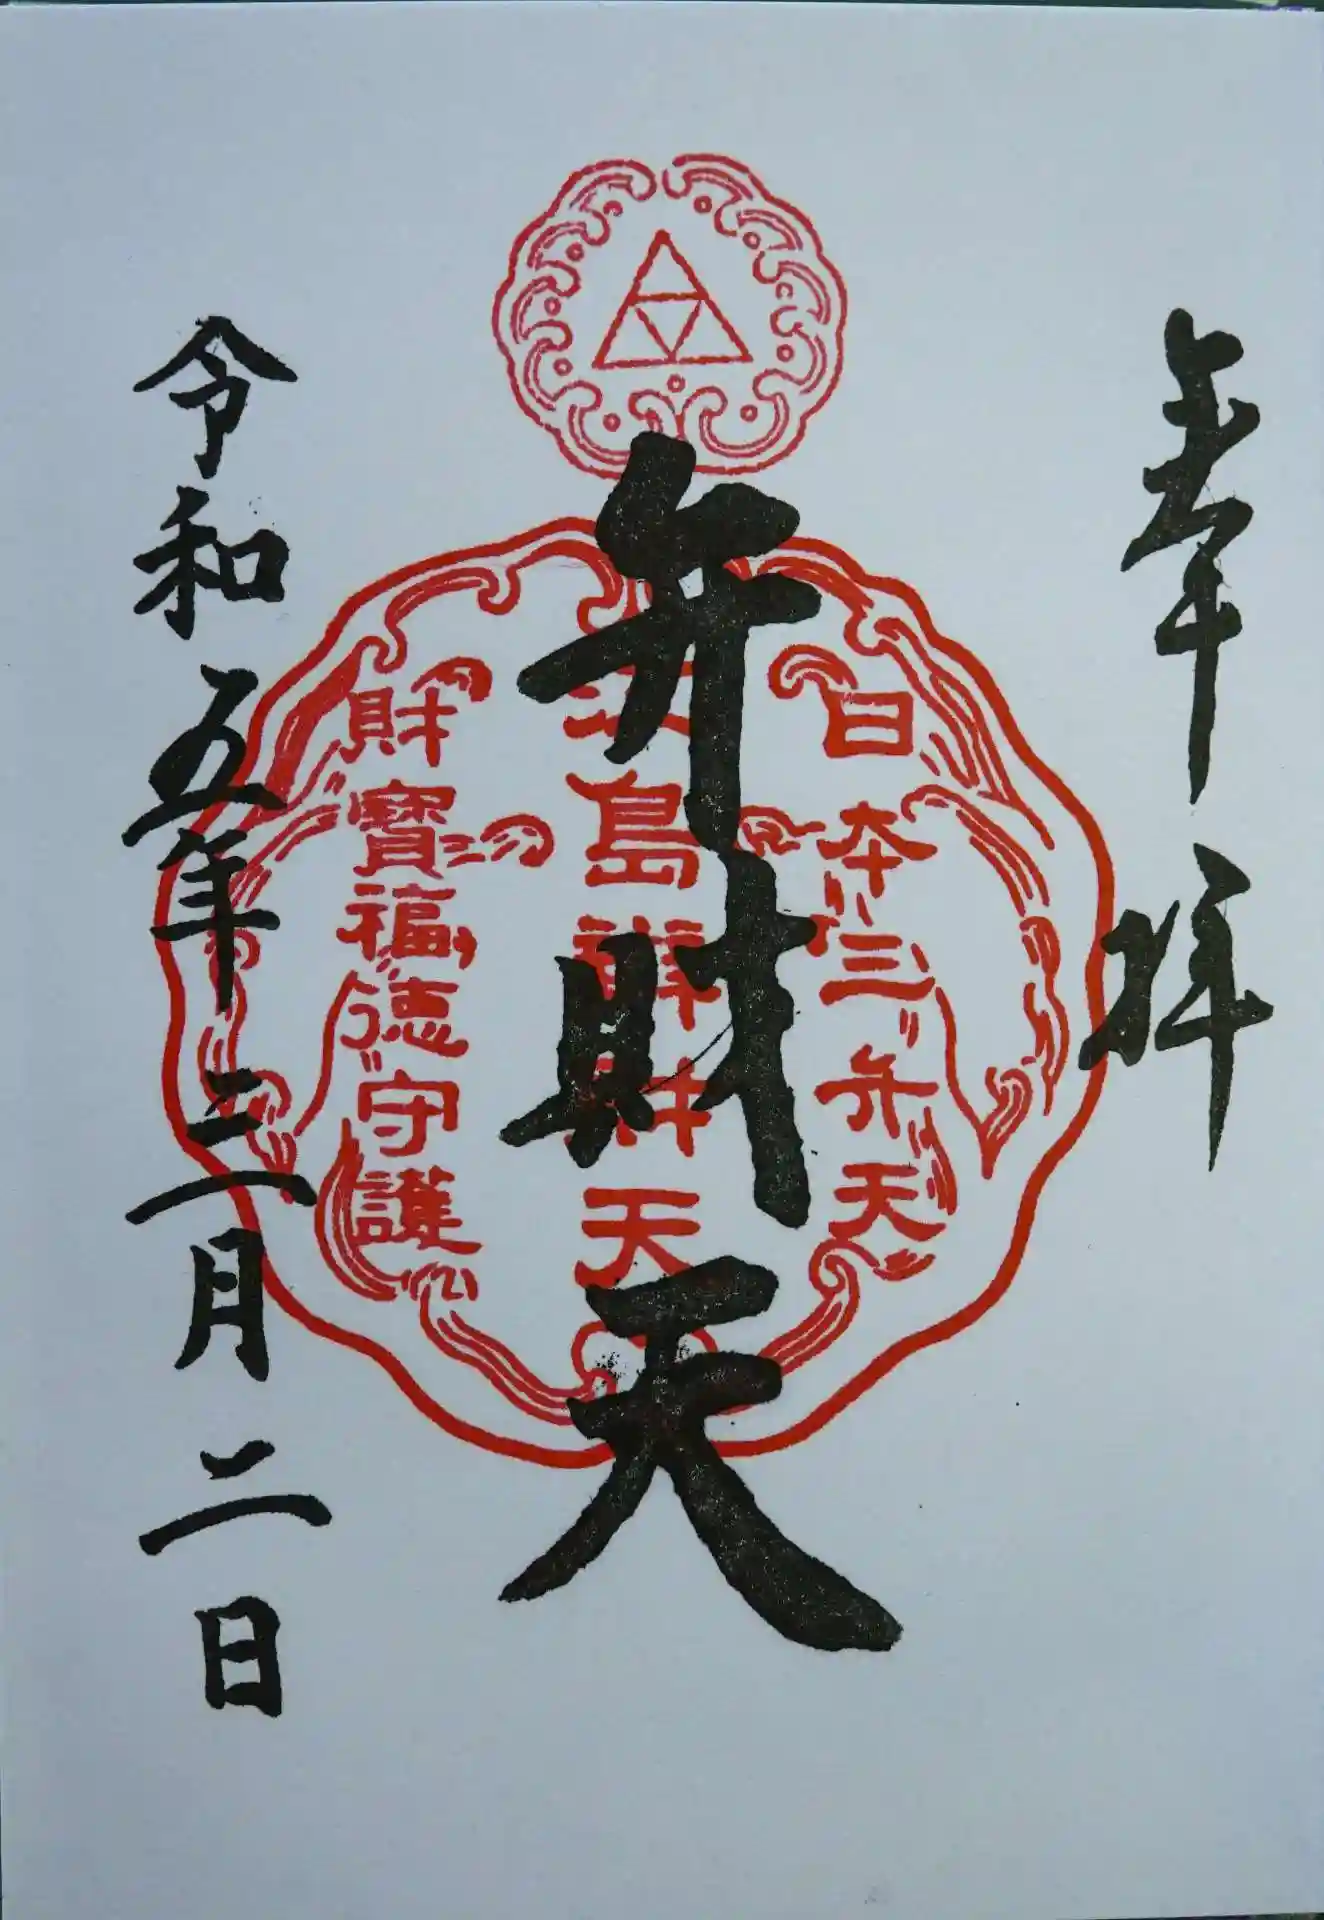 奉拝
日本三弁天
弁財天
江島辨財天
財寶福徳守護
令和五年三月二日